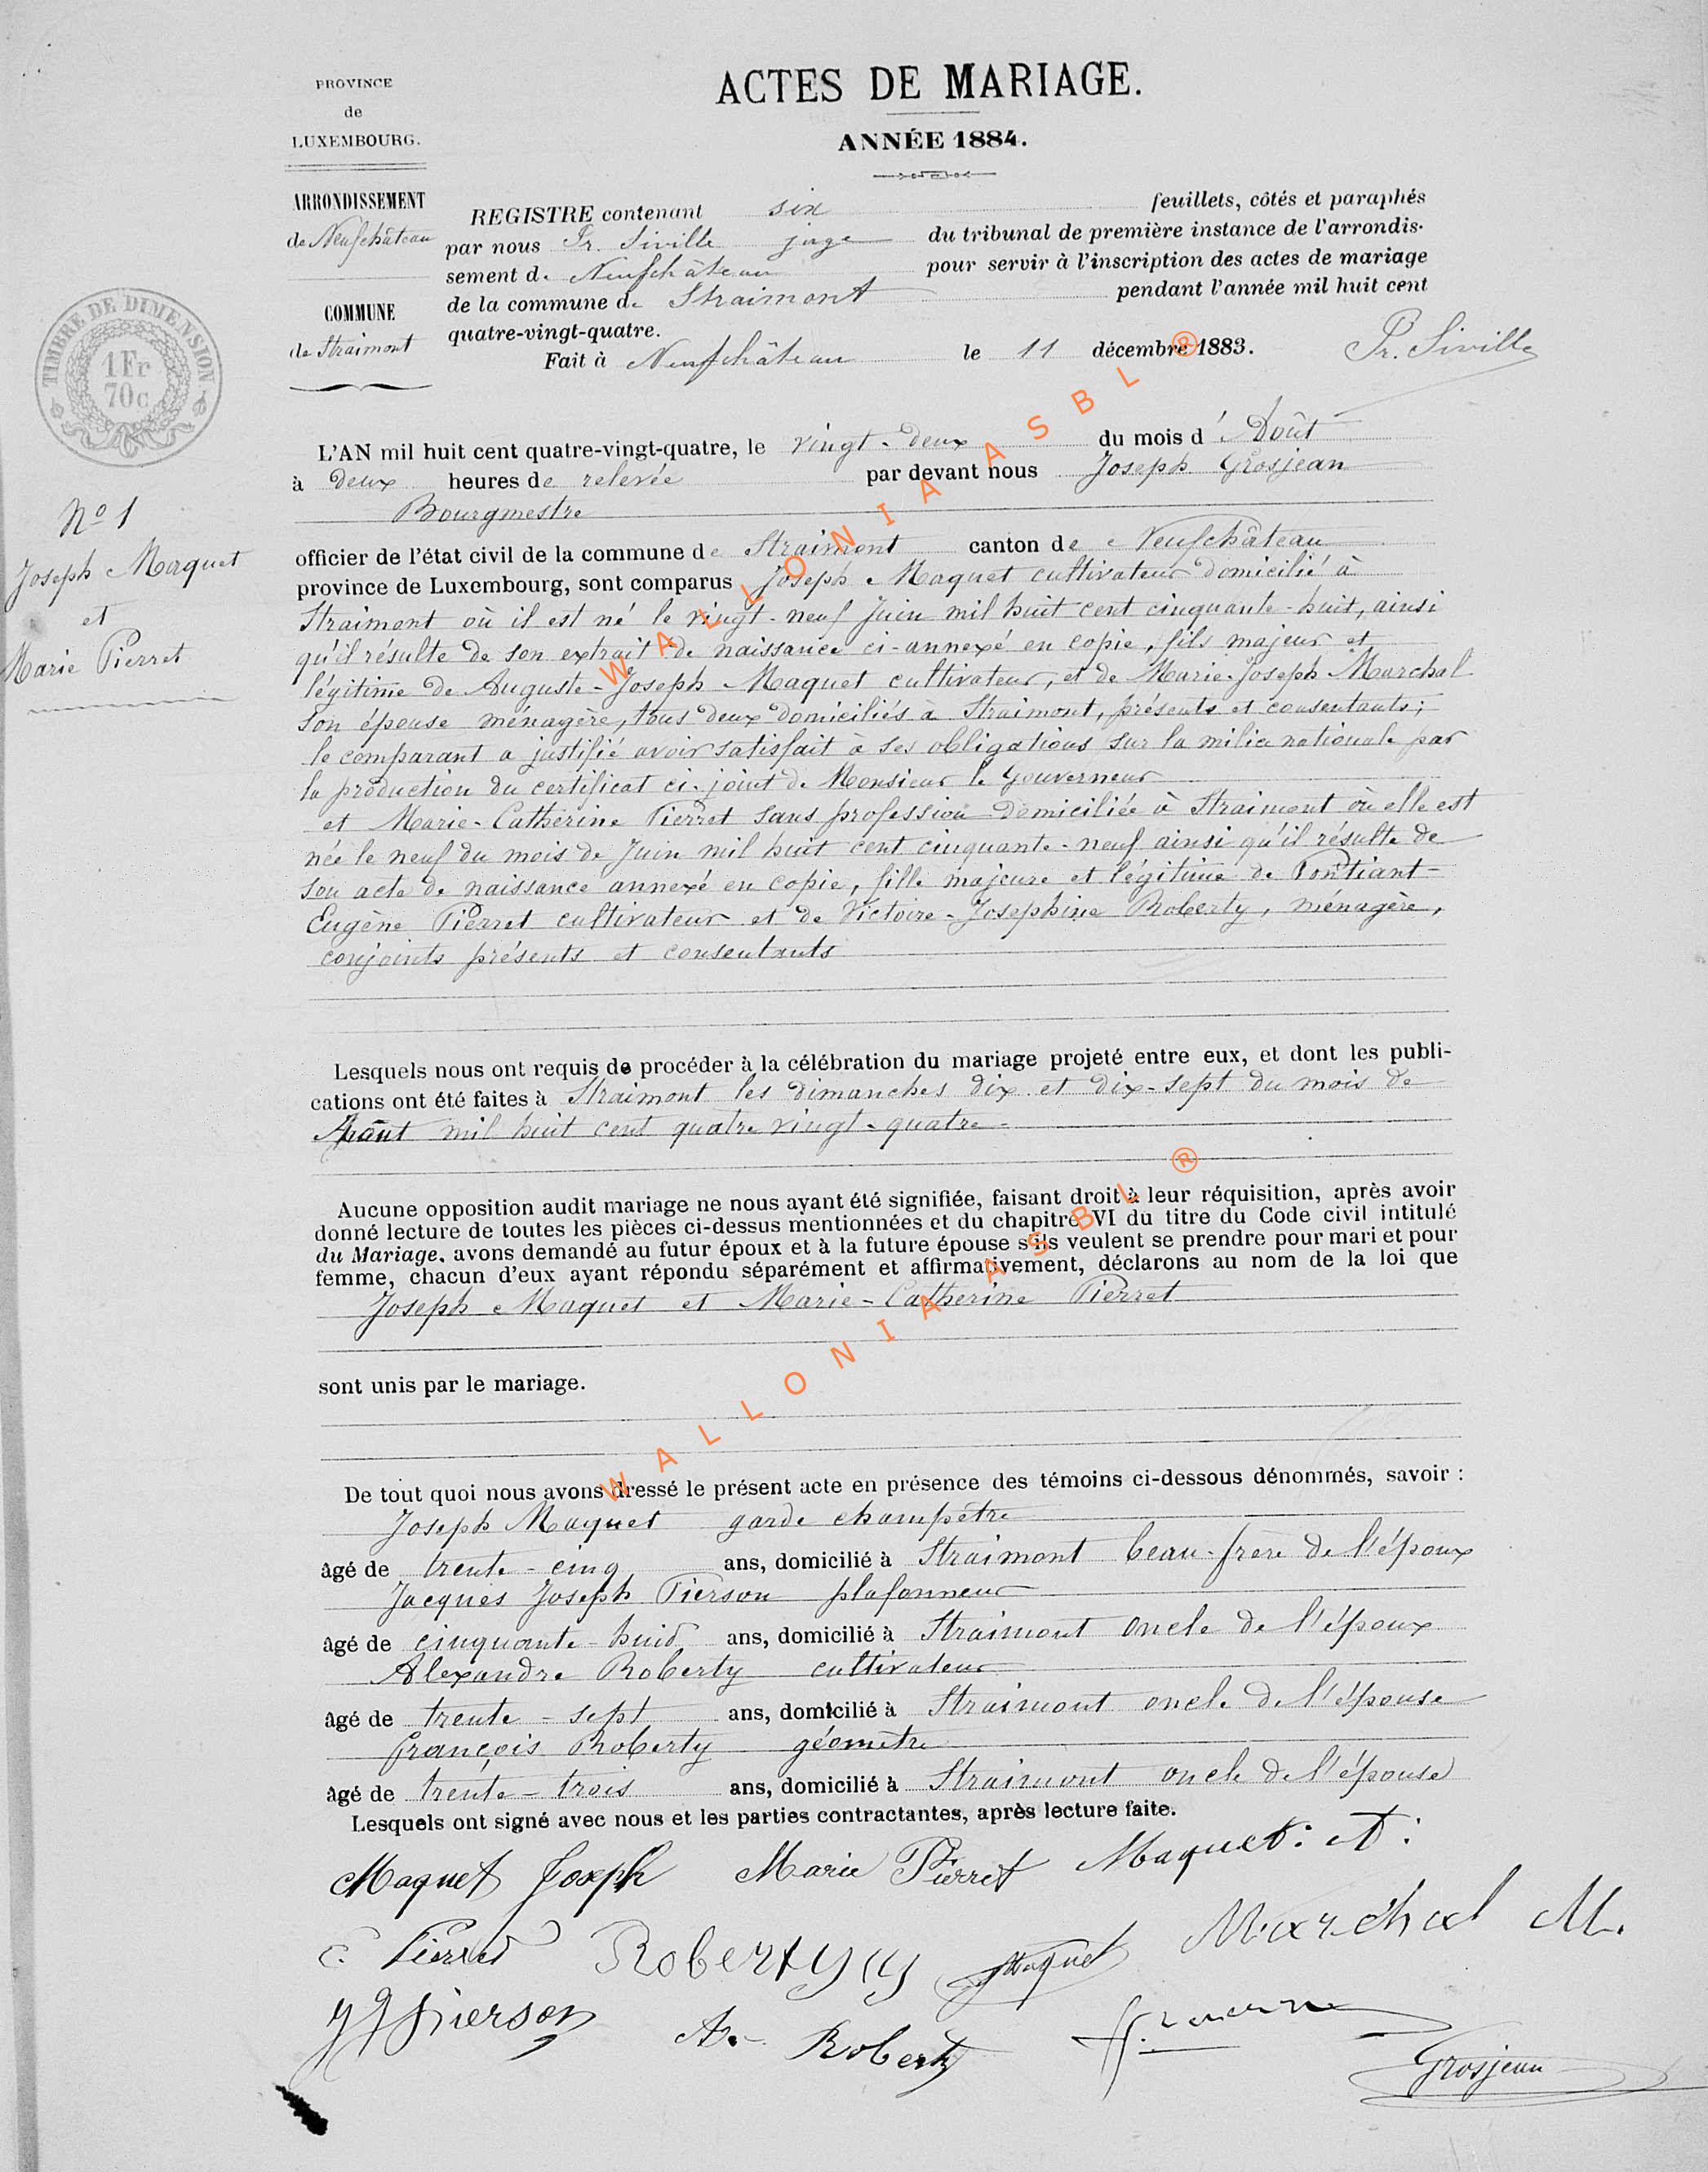 PROVINCE
de
LUXEMBOURG.
ARRONDISSEMENT
de Neufchâteau
COMMUNE
de Straimont
TIMBRE DE DIMENSION
1Fr
70c
ACTES DE MARIAGE.
ANNÉE 1884.
REGISTRE contenant six feuillets, côtés et paraphés
par nous Pr. Siville juge du tribunal de première instance de l'arrondis-
sement de Neufchâteau pour servir à l'inscription des actes de mariage
de la commune de Straimont pendant l'année mil huit cent
quatre-vingt-quatre.
Fait à Neufchâteau le 11 décembre 1883. Pr. Siville
N° 1
Joseph Maquet
et
Marie Pierret
L'AN mil huit cent quatre-vingt-quatre, le vingt-deux du mois d'Août
à deux heures de relevée par devant nous Joseph Grosjean
Bourgmestre
officier de l'état civil de la commune de Straimont canton de Neufchâteau
province de Luxembourg, sont comparus Joseph Maquet cultivateur domicilié à
Straimont où il est né le vingt-neuf Juin mil huit cent cinquante-huit, ainsi
qu'il résulte de son extrait de naissance ci-annexé en copie, fils majeur et
légitime de Auguste-Joseph Maquet cultivateur, et de Marie-Joseph Marchal
son épouse ménagère, tous deux domiciliés à Straimont, présents et consentants;
le comparant a justifié avoir satisfait à ses obligations sur la milice nationale par
la production du certificat ci-joint de Monsieur le Gouverneur
et Marie-Catherine Pierret sans profession domiciliée à Straimont où elle est
née le neuf du mois de Juin mil huit cent cinquante-neuf ainsi qu'il résulte de
son acte de naissance annexé en copie, fille majeure et légitime de Pontiant-
Eugène Pierret cultivateur et de Victoire-Josephine Roberty, ménagère,
conjoints présents et consentants
Lesquels nous ont requis de procéder à la célébration du mariage projeté entre eux, et dont les publi-
cations ont été faites à Straimont les dimanches dix et dix-sept du mois de
Août mil huit cent quatre vingt-quatre
Aucune opposition audit mariage ne nous ayant été signifiée, faisant droit à leur réquisition, après avoir
donné lecture de toutes les pièces ci-dessus mentionnées et du chapitre VI du titre du Code civil intitulé
du Mariage, avons demandé au futur époux et à la future épouse s'ils veulent se prendre pour mari et pour
femme, chacun d'eux ayant répondu séparément et affirmativement, déclarons au nom de la loi que
Joseph Maquet et Marie-Catherine Pierret
sont unis par le mariage.
De tout quoi nous avons dressé le présent acte en présence des témoins ci-dessous dénommés, savoir :
Joseph Maquet garde champêtre
âgé de trente-cinq ans, domicilié à Straimont beau-frère de l'époux
Jacques Joseph Pierson plafonneur
âgé de cinquante-huit ans, domicilié à Straimont oncle de l'époux
Alexandre Roberty cultivateur
âgé de trente-sept ans, domicilié à Straimont oncle de l'épouse
François Roberty géomètre
âgé de trente-trois ans, domicilié à Straimont oncle de l'épouse
Lesquels ont signé avec nous et les parties contractantes, après lecture faite.
Maquet Joseph Marie Pierret Maquet: A:
Pierret Roberty Maquet Marchal M.
JJ Pierson A. Roberty
Grosjean
WALLONIA ASBL ®
WALLONIA ASBL ®